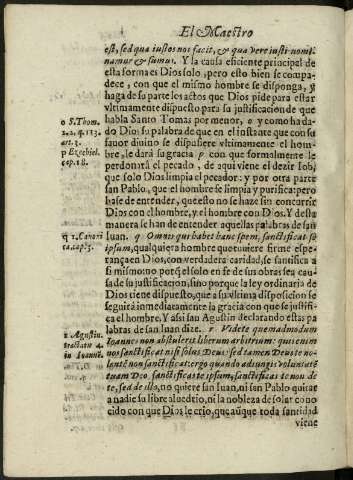 El Maestro
est, sed qua iustos nos facit, & qua vere iusti nomi
namur & sumus. Y la causa eficiente principal de
esta forma es Dios solo, pero esto bien se compa-
dece, con que el mismo hombre se disponga, y
haga de su parte los actos que Dios pide para estar
vltimamente dispuesto para su justificacion de que
habla Santo Tomas por menor, o y como ha da-
do Dios su palabra de que en el instante que con su
fauor diuino se dispusiere vltimamente el hom-
bre, le dará su gracia p con que formalmente le
perdonará el pecado, de aqui viene el dezir Iob,
que solo Dios limpia el pecador: y por otra parte
san Pablo, que el hombre se limpia y purifica: pero
hase de entender, que esto no se haze sin concurrir
Dios con el hombre, y el hombre con Dios. Y desta
manera se han de entender aquellas palabras de san
Iuan. q Omnis qui habet hanc spem, sanctificat se
ipsum, qualquiera hombre que tuuiere firme espe-
rança en Dios, con verdadera caridad, se santifica a
si mismo no porq̃ el solo en fe de sus obras sea cau-
sa de su justificacion, sino porque la ley ordinaria de
Dios tiene dispuesto, que a su vltima disposicion se
seguirá inmediatamente la gracia con que se justifi-
ca el hombre. Y assi san Agustin declarando estas pa
labras de san Iuan dize. r Videte quemadmodum
Ioannes non abstulerit liberum arbitrium: quis enim
nos sanctificat nisi solus Deus: sed tamen Deus te no-
lentẽ non sanctificat: ergo quando adiungis voluntatẽ
tuam Deo sanctificas te ipsum, sanctificas te non de
te, sed de illo, no quiere san Iuan, ni san Pablo quitar
a nadie su libre aluedrio, ni la nobleza de ser al cono
cido con que Dios le crio, que aũque toda santidad
viene
o S. Thom.
1.2. q. 113.
art. 3.
p Ezechiel.
cap. 18.
q 1. Canoni
ca. cap. 3.
r Agustin.
tractatu 4.
in Ioannẽ.